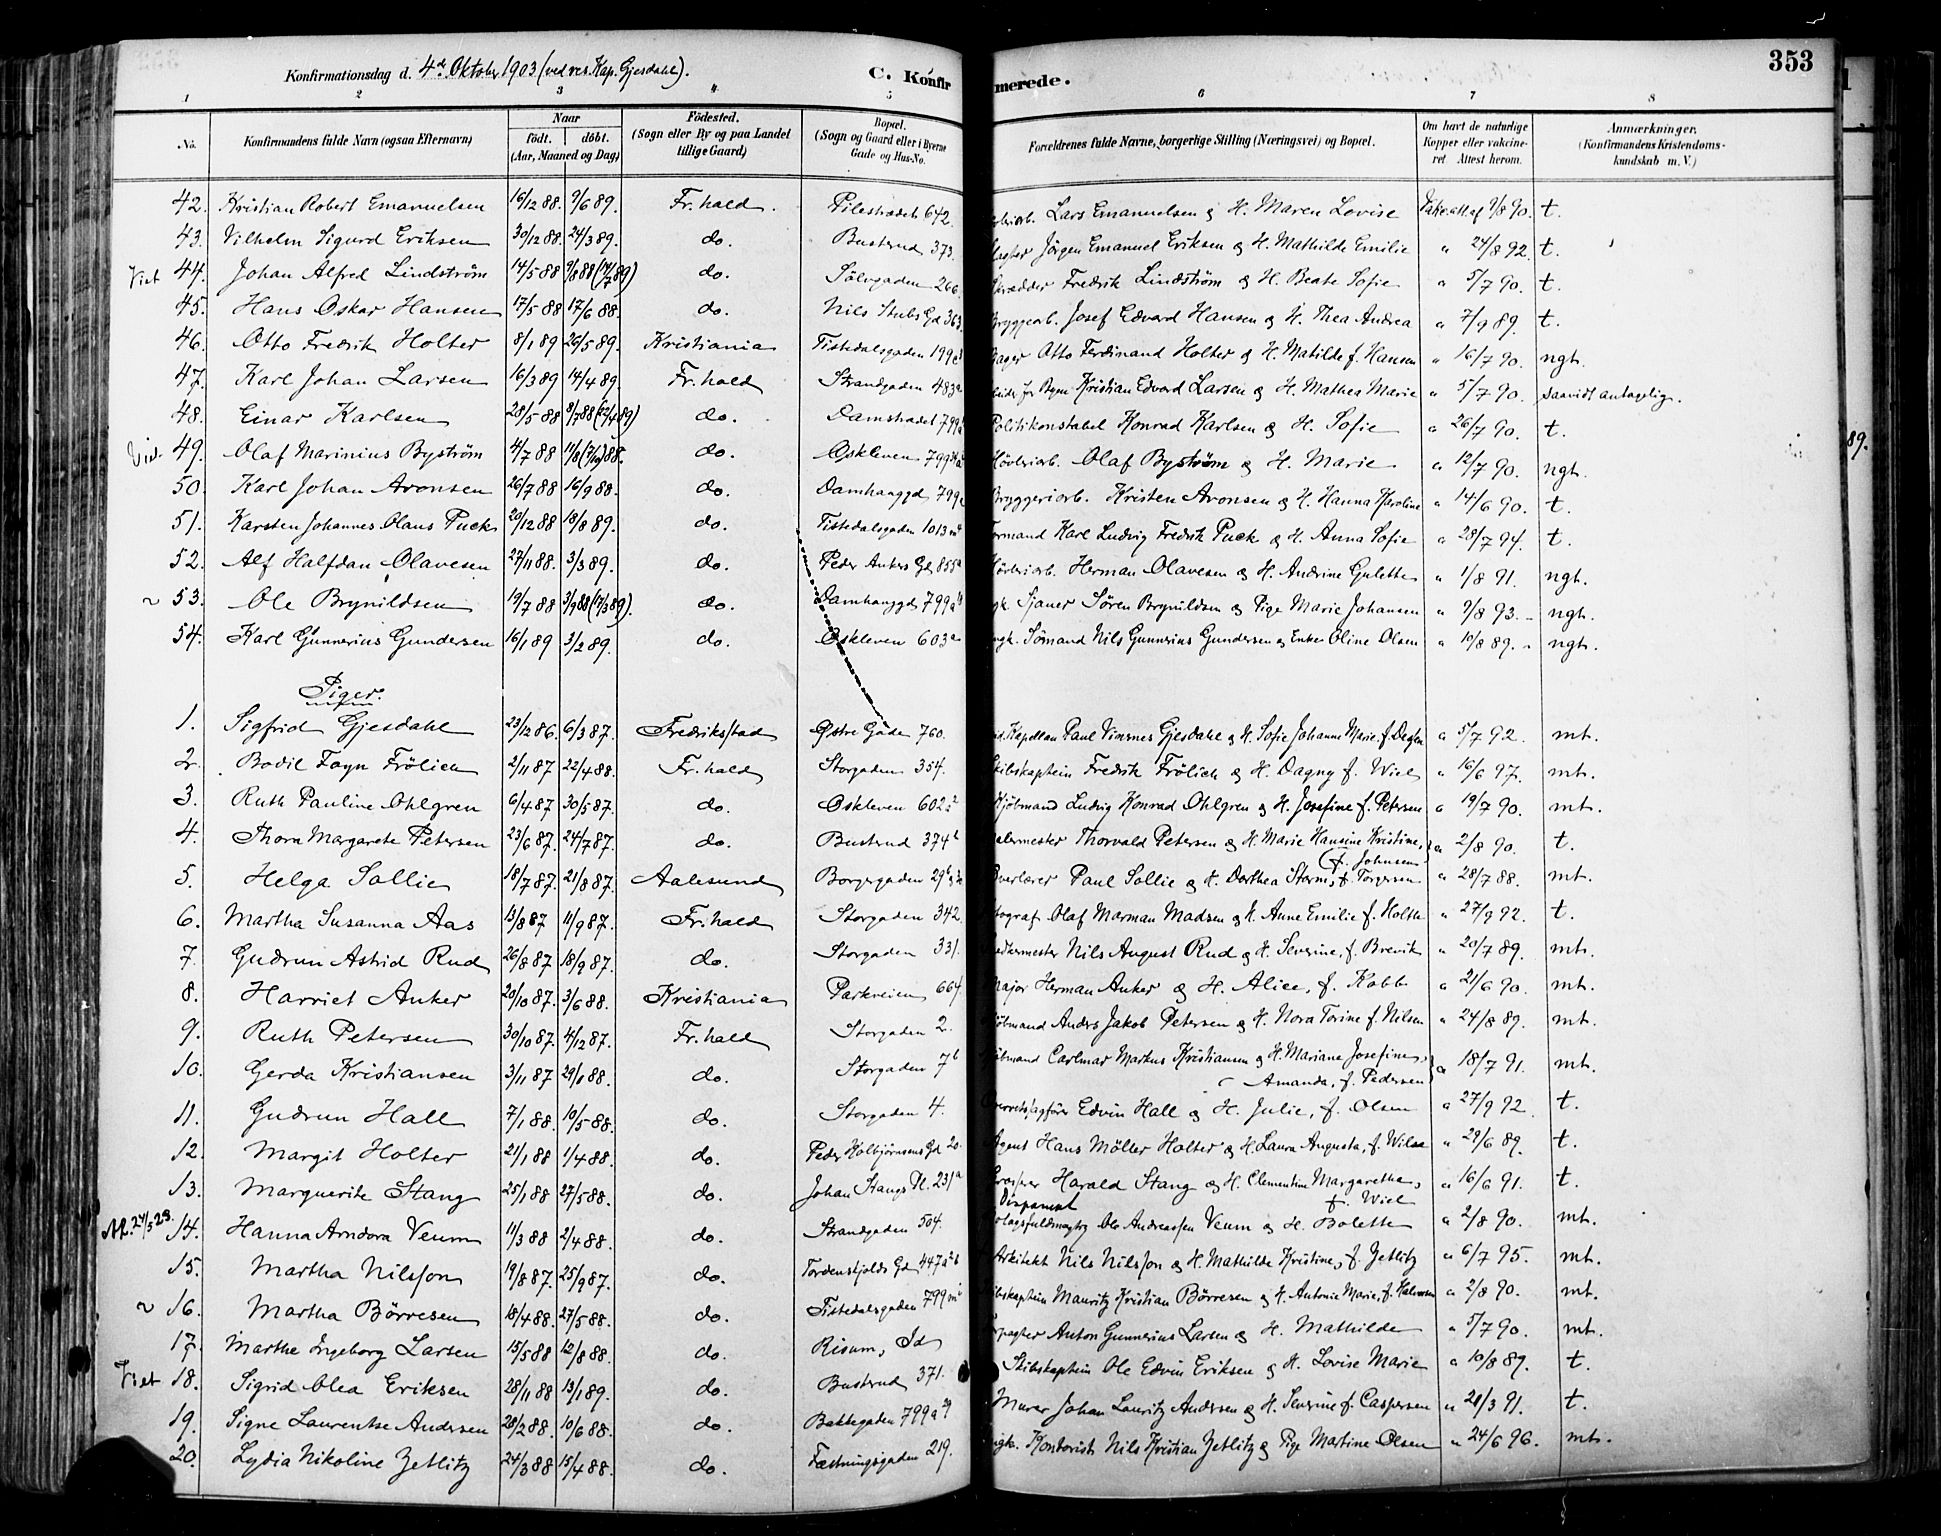 353
Konfirmationsdag d. 4de Oktober 1903 (ved res. Kap. Gjesdahl).
C. Konfirmerede.
1 2 3 4 5 6 7 8
No. Konfirmandens fulde Navn (ogsaa Efternavn) Naar født. døbt. (Aar, Maaned og Dag) Fødested. (Sogn eller By og paa Landet tillige Gaard) Bopæl. (Sogn og Gaard eller i Byerne Gade og Hus-No. Forældrenes fulde Navne, borgerlige Stilling (Næringsvei) og Bopæl. Om havt de naturlige Kopper eller vakcineret Attest herom. Anmærkninger. (Konfirmandens Kristendomskundskab m. V.)
42. Kristian Robert Emanuelsen 16/12 88. 9/6 89. Fr.hald. Pilestrædet 642. Lars Emanuelsen og H. Maren Lovise 9/8 90. t.
43. Vilhelm Sigurd Eriksen 30/12 88. 24/3 89. do. Busterud 373. Jörgen Emanuel Eriksen og H. Mathilde Emilie " 24/8 92. t.
44. Johan Alfred Lindström 14/5 88 9/8 88 (14/7 89) do. Sølvgaden 266. Skrædder Fredrik Lindström og H. Beate Sofie " 5/7 90. t.
45. Hans Oskar Hansen 17/5 88 17/6 88. do. Nils Stubs Gd 363. Bryggearb. Josef Edvard Hansen og H. Thea Andrea " 7/9 89. t.
46. Otto Fredrik Holter 8/1 89 26/5 89. Kristiania Tistedalsgaden 199 Bager Otto Ferdinand Holter og H. Matilde f. Hansen " 16/7 90. ngt.
47. Karl Johan Larsen 16/3 89 14/4 89. Fr.hald Strandgaden 483a Kristian Edvard Larsen og H. Mathea Marie " 5/7 90. saavidt antagelig.
48. Einar Karlsen 28/5 88 8/7 88 (22/4 89) do. Damstrædet 799 Politikonstabel Konrad Karlsen og H. Sofie " 26/7 90. t.
49. Olaf Marinius Byström 4/7 88 do. Oskleven 799 Høvleriarb. Olaf Byström og H. Marie " 12/7 90. ngt.
50. Karl Johan Aronsen 26/7 88 16/9 88. do. Damhauggd 799 Bryggeriarb. Kristen Aronsen og H. Hanna Karoline " 14/6 90. t.
51. Karsten Johannes Olaus Puck 29/12 88 18/8 89. do. Tistedalsgaden 1013 Formand Karl Ludvig Fredrik Puck og H. Anna Sofie " 28/7 94. t.
52. Alf Halfdan Olavesen 27/11 88. 3/3 89. do. Peder Ankers Gd 855a Høvleriarb. Herman Olavesen og H. Andrine Gulette " 1/8 91. ngt.
~ 53. Ole Brynildsen 19/7 88 3/9 88 (17/3 89). do. Damhauggd 799a Sjauer Søren Brynildsen og Pige Marie Johansen " 9/8 93. ngt.
54. Karl Gunnerius Gundersen 16/1 89 3/2 89. do. Oskleven 603a Sømand Nils Gunnerius Gundersen og Enke Oline Olsen " 10/8 89. ngt.
Piger.
1. Sigfrid Gjesdahl 23/12 86. 6/3 87. Fredriksstad Østre Gade 760. Kapellan Paul Gjesdahl og H. Sofie Johanne Marie, f. " 5/7 92. mt.
2. Bodil Fayn Frölich 2/11 87 22/4 88. Fr.hald Storgaden 354. Skibskaptein Fredrik Frölich og H. Dagny f. Wiel " 16/6 97. mt.
3. Ruth Pauline Ohlgren 6/4 87 30/5 87. do. Oskleven 602 Kjøbmand Ludvig Konrad Ohlgren og H. Josefine f. Petersen " 19/7 90. mt.
4. Thora Margarete Petersen 23/6 87. 24/7 87. do. Busterud 374b Malermester Thorvald Petersen og H. Marie Hansine Kristine, f. Johnsen " 2/8 90. t.
5. Helga Sollie 18/7 87. 21/8 87. Aalesund Borgergaden 29 Overlærer Paul Sollie og H. Dorthea Storm, f. Torgersen " 28/7 88. mt.
6. Martha Susanna Aas 13/8 87 11/9 87. Fr.hald Storgaden 342. Olaf Marman Madsen og H. Anne Emilie f. Holth " 27/9 92. t.
7. Gudrun Astrid Rud 26/8 87 18/9 87. do. Storgaden 331. Nils August Rud og H. Severine, f. Brevik " 20/7 89. mt.
8. Harriet Anker 20/10 87. 3/6 88. Kristiania Parkveien 664. Major Herman Anker og H. Alice, f. Kobb " 21/6 90. mt.
9. Ruth Petersen 30/10 87. 4/12 87. Fr.hald Storgaden 2. Kjøbmand Anders Jakob Petersen og H. Nora Torine f. Nilsen " 24/8 89. mt.
10. Gerda Kristiansen 3/11 87 29/1 88. do. Storgaden 7b Kjøbmand Carlmar Markus Kristiansen og H. Mariane Josefine, Amanda, f. Pedersen " 18/7 91. mt.
11. Gudrun Hall 7/1 88. 10/5 88. do. Storgaden 4. Overretssagfører Edvin Hall og H. Julie, f. Olsen " 27/9 92. t.
12. Margit Holter 21/1 88 1/4 88. do. Peder Kolbjörnsens Gd 20. Agent Hans Möller Holter og H. Laura Augusta, f. Wilse " 29/6 89. t.
13. Marguerite Stang 25/1 88 27/5 88. do. Johan Stangs Pl. 231a Harald Stang og H. Clementine Margarethe, f. Wiel " 16/6 91. t.
24/5 28. 14. Hanna Arndora Veum 11/3 88 2/4 88. do. Strandgaden 504. Disponent Ole Andreassen Veum og H. Bolette " 2/8 90. mt.
15. Martha Nilsson 19/8 87. 25/9 87. do. Tordenskjolds Gd 447a Arkitekt Nils Nilsson og H. Mathilde Kristine, f. Zetlitz " 6/7 95. mt.
~ 16. Martha Börresen 18/4 88. 27/5 88. do. Tistedalsgaden 799 Skibskaptein Mauritz Kristian Börresen og H. Antonie Marie, f. Halvorsen " 2/8 90. mt.
17. Marthe Ingeborg Larsen 15/5 88 12/8 88. do. Risum, Id Forpagter Anton Gunnerius Larsen og H. Mathilde " 5/7 90. mt.
18. Sigrid Olea Eriksen 28/11 88 13/1 89. do. Busterud 371. Skibskaptein Ole Edvin Eriksen og H. Lovise Marie " 10/8 89. t.
19. Signe Laurentse Andersen 28/2 88. 10/6 88. do. Bakkegaden 799a Murer Johan Lauritz Andersen og H. Severine f. Caspersen " 21/3 91. t.
20. Lydia Nikoline Zetlitz 24/3 88 15/4 88. do. Fæstningsgaden 219. Kontorist Nils Kristian Zetlitz og Pige Martine Olsen " 24/6 96. mt.
89.